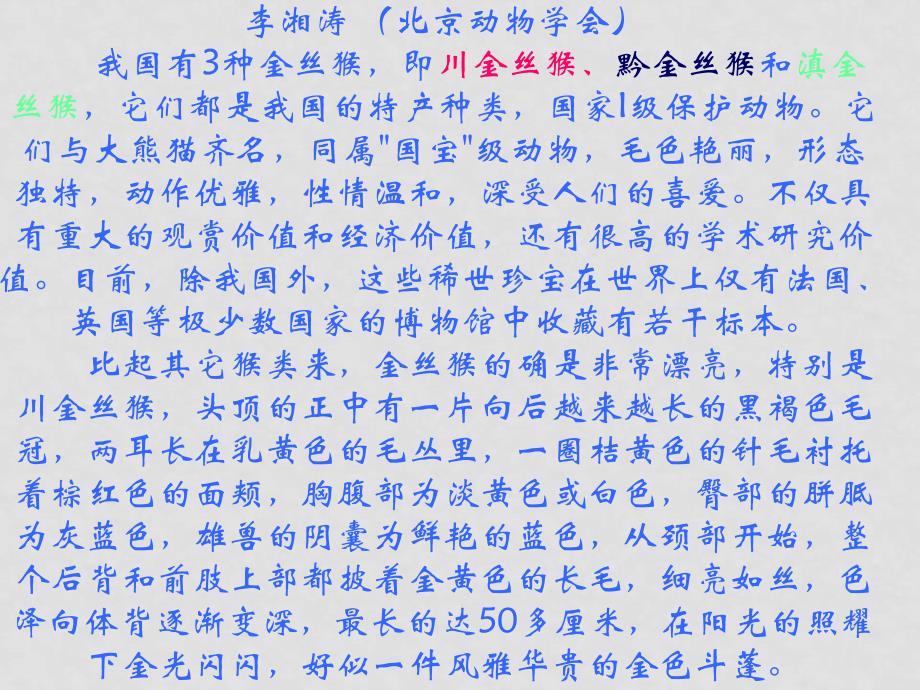 李湘涛 （北京动物学会）
我国有3种金丝猴，即川金丝猴、黔金丝猴和滇金
丝猴，它们都是我国的特产种类，国家I级保护动物。它
们与大熊猫齐名，同属"国宝"级动物，毛色艳丽，形态
独特，动作优雅，性情温和，深受人们的喜爱。不仅具
有重大的观赏价值和经济价值，还有很高的学术研究价
值。目前，除我国外，这些稀世珍宝在世界上仅有法国、
英国等极少数国家的博物馆中收藏有若干标本。
比起其它猴类来，金丝猴的确是非常漂亮，特别是
川金丝猴，头顶的正中有一片向后越来越长的黑褐色毛
冠，两耳长在乳黄色的毛丛里，一圈桔黄色的针毛衬托
着棕红色的面颊，胸腹部为淡黄色或白色，臀部的胼胝
为灰蓝色，雄兽的阴囊为鲜艳的蓝色，从颈部开始，整
个后背和前肢上部都披着金黄色的长毛，细亮如丝，色
泽向体背逐渐变深，最长的达50多厘米，在阳光的照耀
下金光闪闪，好似一件风雅华贵的金色斗蓬。